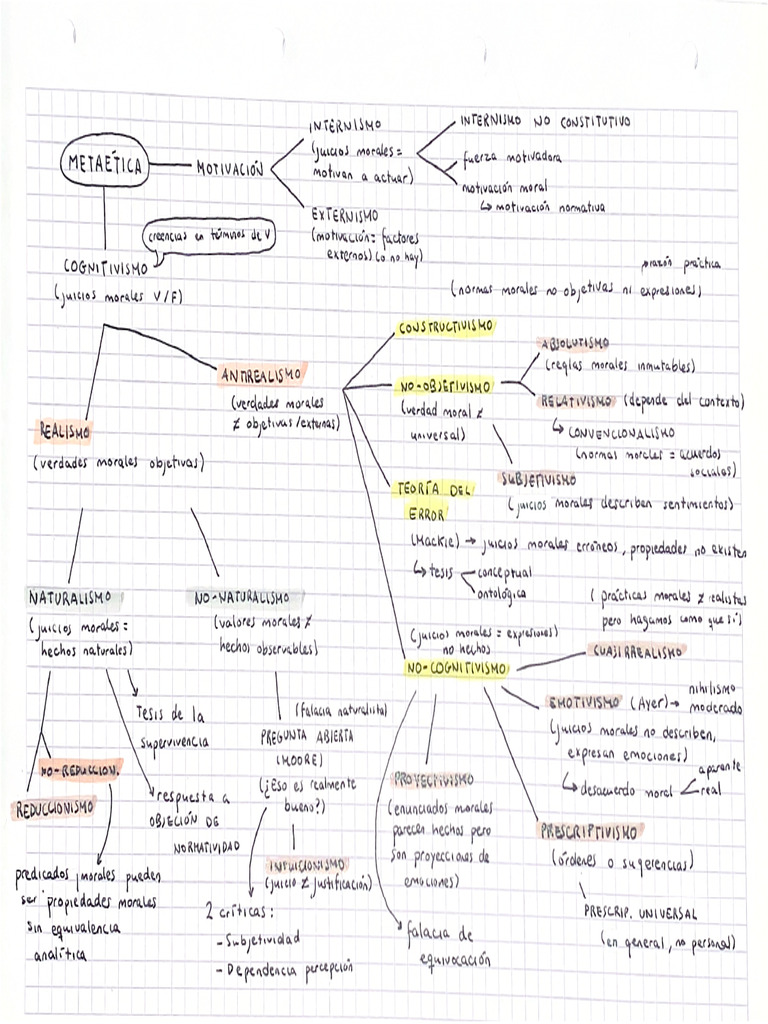 METAÉTICA
MOTIVACIÓN
INTERNISMO
(juicios morales =
motivan a actuar)
INTERNISMO NO CONSTITUTIVO
fuerza motivadora
motivación moral
↳ motivación normativa
EXTERNISMO
(motivación = factores
externos) (o no hay)
creencias en términos de V
COGNITIVISMO
(juicios morales V/F)
razón práctica
(normas morales no objetivas ni expresiones)
CONSTRUCTIVISMO
ANTIREALISMO
(verdades morales
≠ objetivas/externas)
REALISMO
(verdades morales objetivas)
NO-OBJETIVISMO
(verdad moral ≠
universal)
ABSOLUTISMO
(reglas morales inmutables)
RELATIVISMO (depende del contexto)
↳ CONVENCIONALISMO
(normas morales = acuerdos
sociales)
SUBJETIVISMO
(juicios morales describen sentimientos)
TEORÍA DEL
ERROR
(Mackie) → juicios morales erróneos, propiedades no existen
↳ tesis
conceptual
ontológica
NATURALISMO
(juicios morales =
hechos naturales)
NO-NATURALISMO
(valores morales ≠
hechos observables)
(prácticas morales ≠ realistas
pero hagamos como que sí)
(juicios morales = expresiones)
no hechos
NO-COGNITIVISMO
CUASIRREALISMO
EMOTIVISMO (Ayer) → nihilismo
moderado
(juicios morales no describen,
expresan emociones)
↳ desacuerdo moral
aparente
real
Tesis de la
supervivencia
(falacia naturalista)
PREGUNTA ABIERTA
(MOORE)
(¿Eso es realmente
bueno?)
NO-REDUCCION.
REDUCCIONISMO
respuesta a
OBJECIÓN DE
NORMATIVIDAD
PROYECTIVISMO
(enunciados morales
parecen hechos pero
son proyecciones de
emociones)
PRESCRIPTIVISMO
(órdenes o sugerencias)
INTUICIONISMO
(juicio ≠ justificación)
predicados morales pueden
ser propiedades morales
sin equivalencia
analítica
2 críticas:
- Subjetividad
- Dependencia percepción
falacia de
equivocación
PRESCRIP. UNIVERSAL
(en general, no personal)